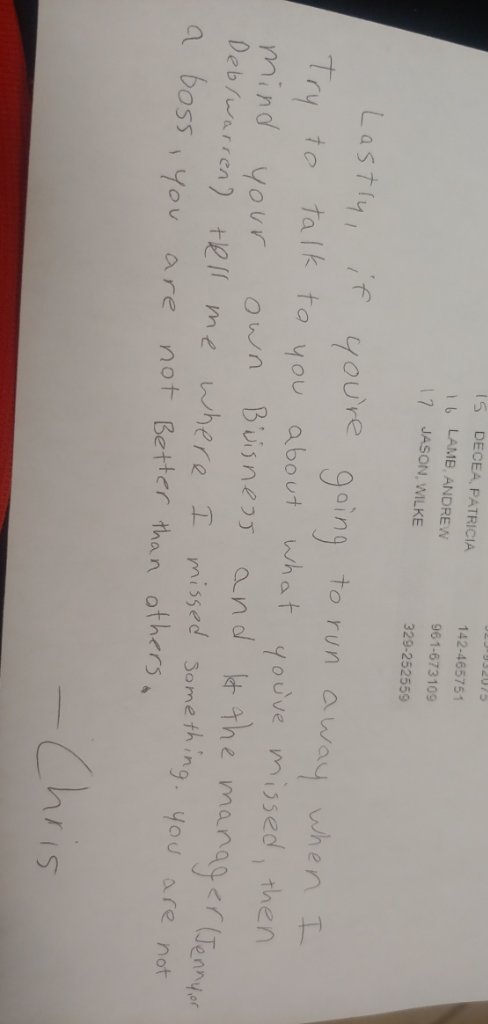 15 DECEA, PATRICIA 142-465751
16 LAMB, ANDREW 961-673109
17 JASON, WILKE 329-252559
Lastly, if you're going to run away when I
try to talk to you about what you've missed, then
mind your own Buisness and the manager (Jenny, or
Deb/Warren) tell me where I missed something. You are not
a boss, you are not Better than others.
— Chris